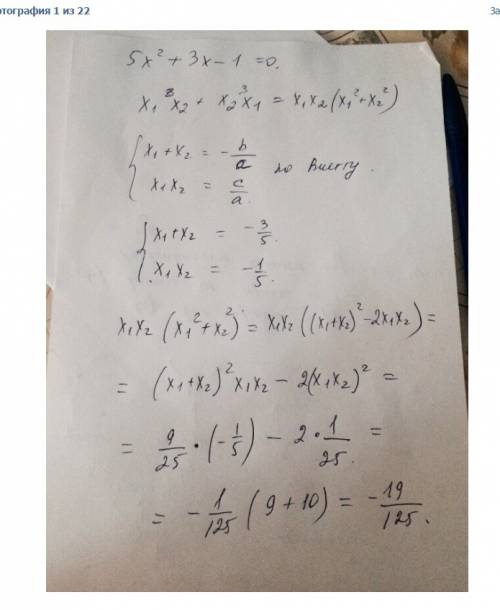 тография 1 из 22
За
5x² + 3x - 1 = 0.
x₁³x₂ + x₂³x₁ = x₁x₂(x₁² + x₂²)
{ x₁ + x₂ = -b/a
x₁x₂ = c/a. по Виету.
{ x₁ + x₂ = -3/5.
x₁x₂ = -1/5.
x₁x₂(x₁² + x₂²) = x₁x₂((x₁+x₂)² - 2x₁x₂) =
= (x₁+x₂)²x₁x₂ - 2(x₁x₂)² =
= 9/25 · (-1/5) - 2 · 1/25. =
= -1/125 (9 + 10) = -19/125.